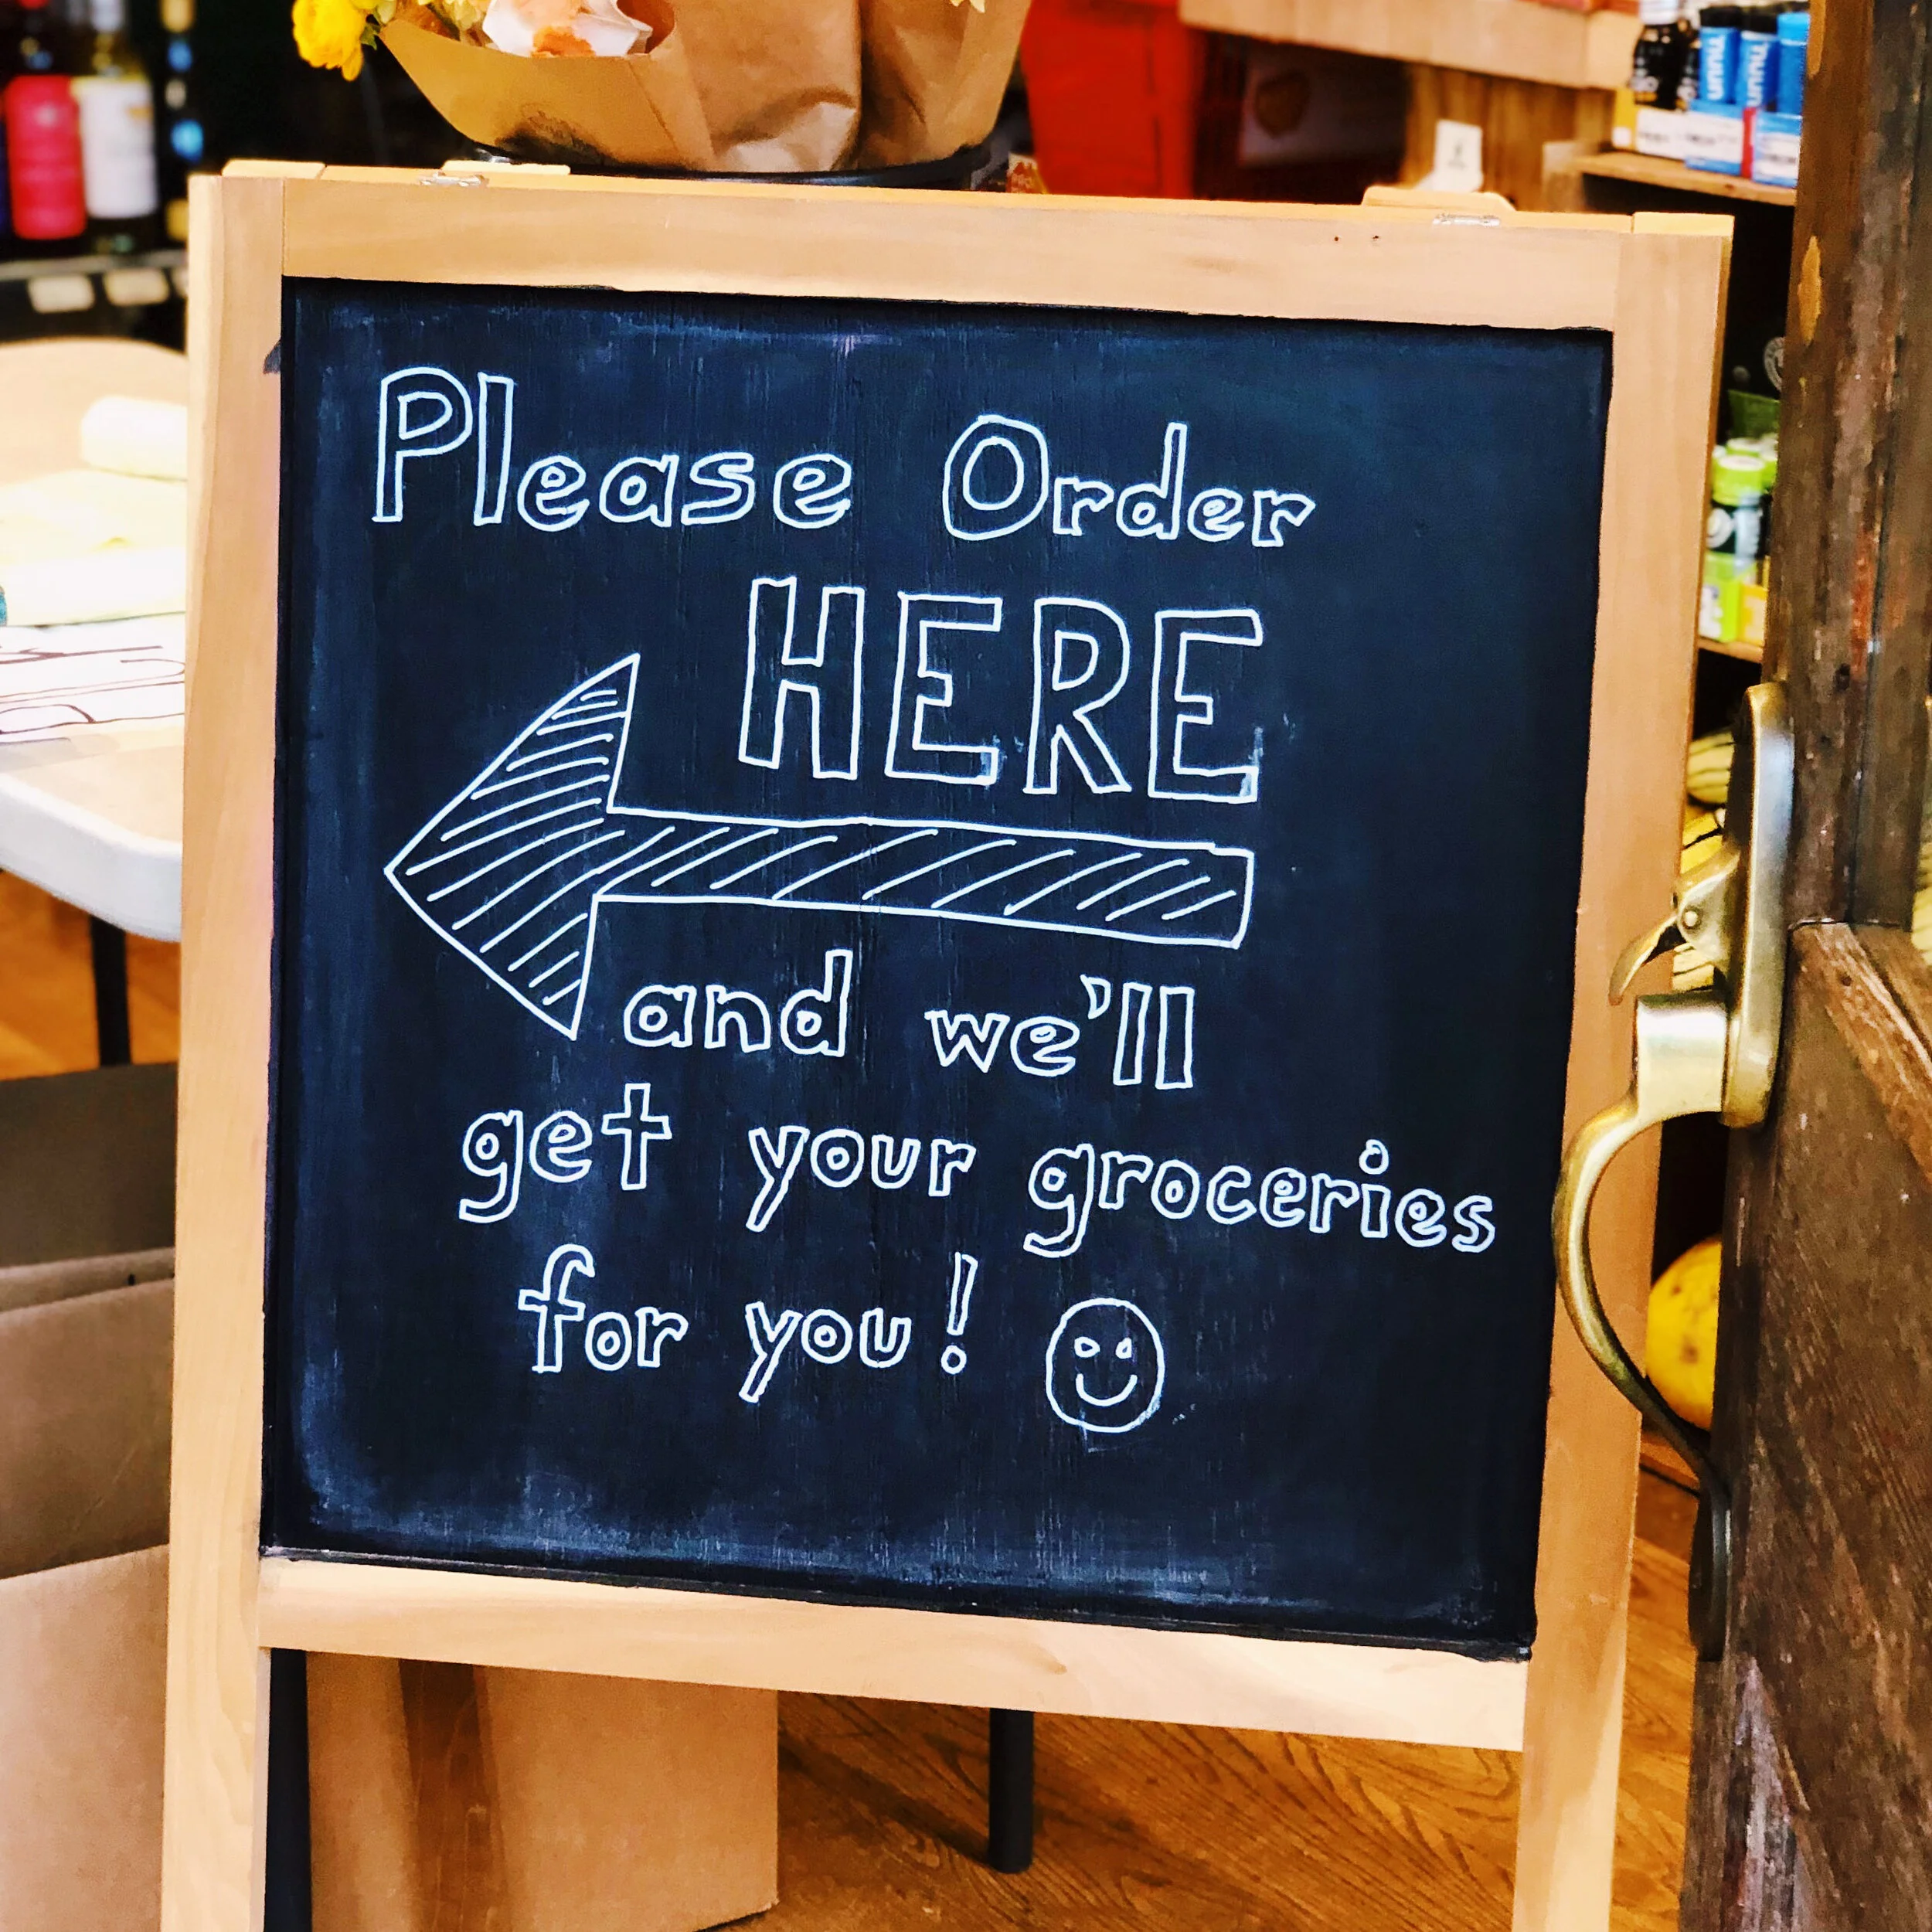 Please Order
HERE
and we'll
get your groceries
for you!
nuun
nuun